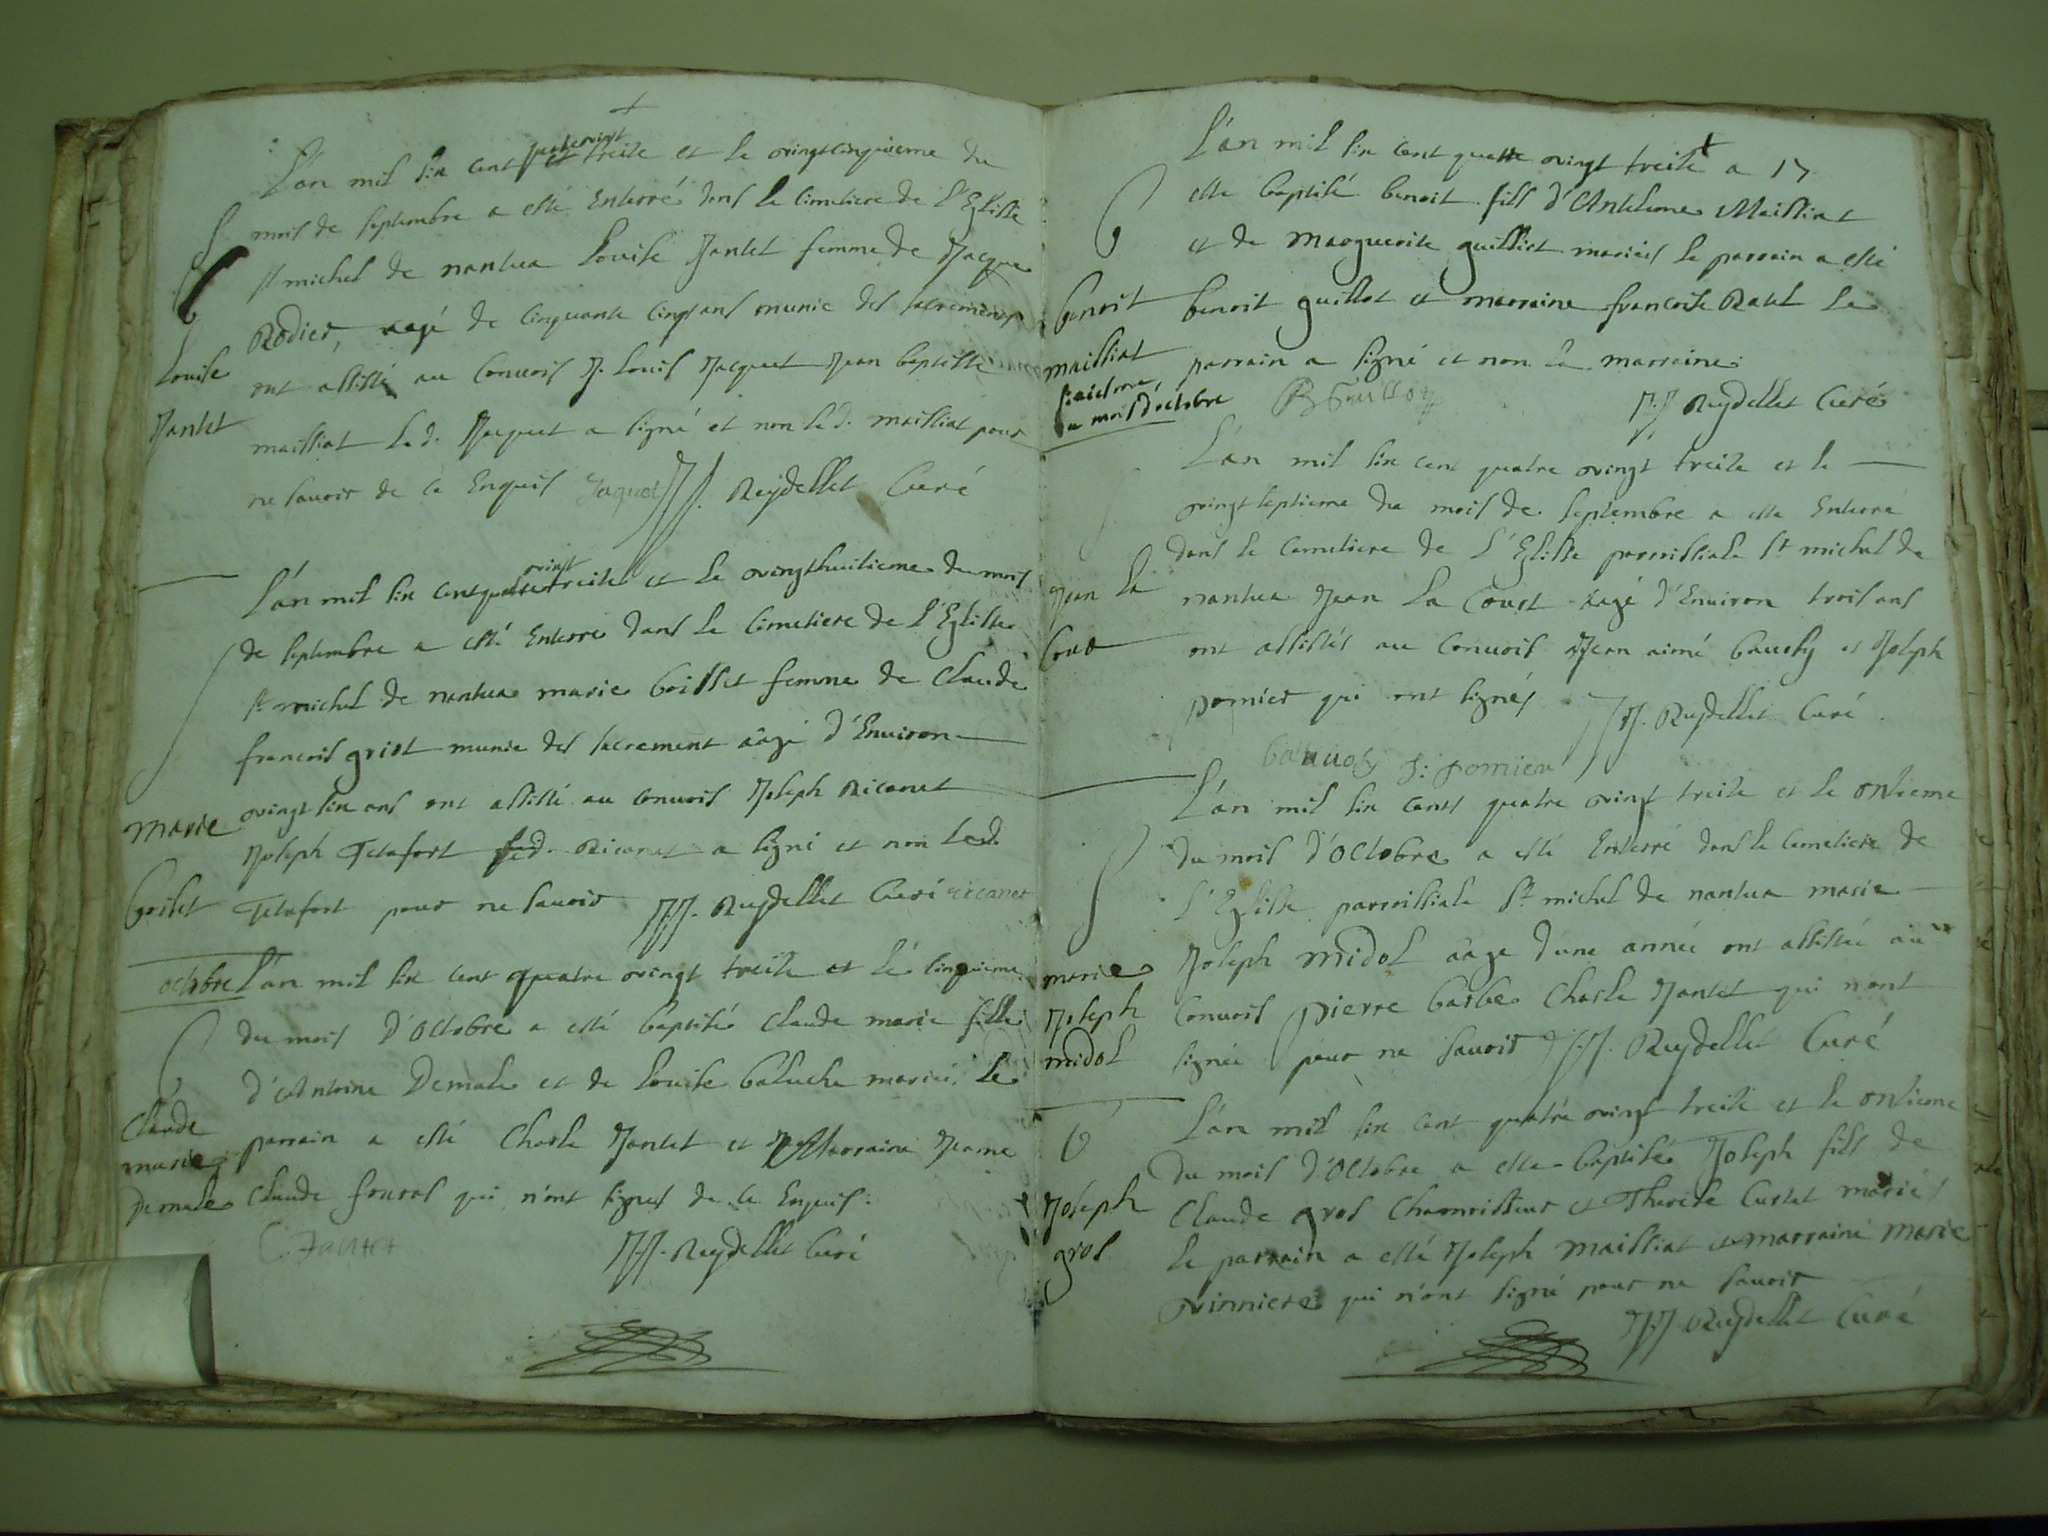 L'an mil six cent quatre vingt treise et le vingtcinquieme du
mois de septembre a esté Enterré dans le Cimetiere de l'Eglisse
st michel de nantua Louise Jantet femme de Jacque
Rodier, aagé de cinquante cinq ans munie des sacremens
Louise
ont assisté au Convois J. Louis Jacquet Jean baptiste
Jantet
mailliat led. Jacquet a signé et non led. mailliat pour
ne savoir de ce Enquis Jaquet J.J. Reydellet Curé
L'an mil six cent quatre vingt treise et le vingthuitieme du mois
de septembre a esté Enterré dans le Cimetiere de l'Eglisse
st michel de nantua marie boisset femme de Claude
francois griot munie des sacrement aagé d'Environ
vingt six ans ont assisté au convois Joseph Ricanet
marie
Joseph Tetafort led. Ricanet a signé et non led.
boisset
Tetafort pour ne savoir J.J. Reydellet Curé ricanet
octobre
L'an mil six cent quatre vingt treise et le cinquieme
du mois d'octobre a esté baptisé Claude marie fille
d'Antoine Demale et de Louise baluche mariés le
Claude
marie
Demale
parrain a esté Charle Jantet et Marraine Jeanne
Claude fouras qui n'ont signes de ce Enquis:
C. Jantet J.J. Reydellet Curé
L'an mil six cent quatre vingt treise + a 17
esté baptisé benoit fils d'Anthelme Mailliat
et de Marguerite guilliot mariés le parrain a esté
benoit
mailliat
benoit guillot et marraine francoise Ratel le
parrain a signé et non la marraine.
du mois d'octobre
B Guillot J.J. Reydellet Curé
L'an mil six cent quatre vingt treise et le
vingt septieme du mois de septembre a esté Enterré
dans le Cemetiere de l'Eglisse parroissiale st michel de
Jean La
Court
nantua Jean La Court aagé d'Environ trois ans
ont assistés au Convois Jean aimé bauoly et Joseph
pomier qui ont signés J.J. Reydellet Curé
J: pomier
L'an mil six cents quatre vingt treise et le onsieme
du mois d'octobre a esté Enterré dans le Cemetiere de
l'Eglisse parroissiale st michel de nantua marie
marie
Joseph
midol
Joseph midol aage d'une année ont assistée au
Convois pierre barbe Charle Jantet qui n'ont
signée pour ne savoir J.J. Reydellet Curé
L'an mil six cent quatre vingt treise et le onsieme
du mois d'octobre a esté baptisé Joseph fils de
Joseph
gros
Claude gros Chamoisseur et Therese Curtet mariés
le parrain a esté Joseph mailliat et marraine marie
vinniere qui n'ont signé pour ne savoir
J.J. Reydellet Curé